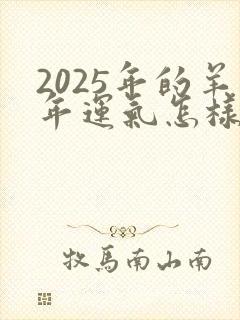 2025年的羊
年運氣怎樣
牧馬南山南